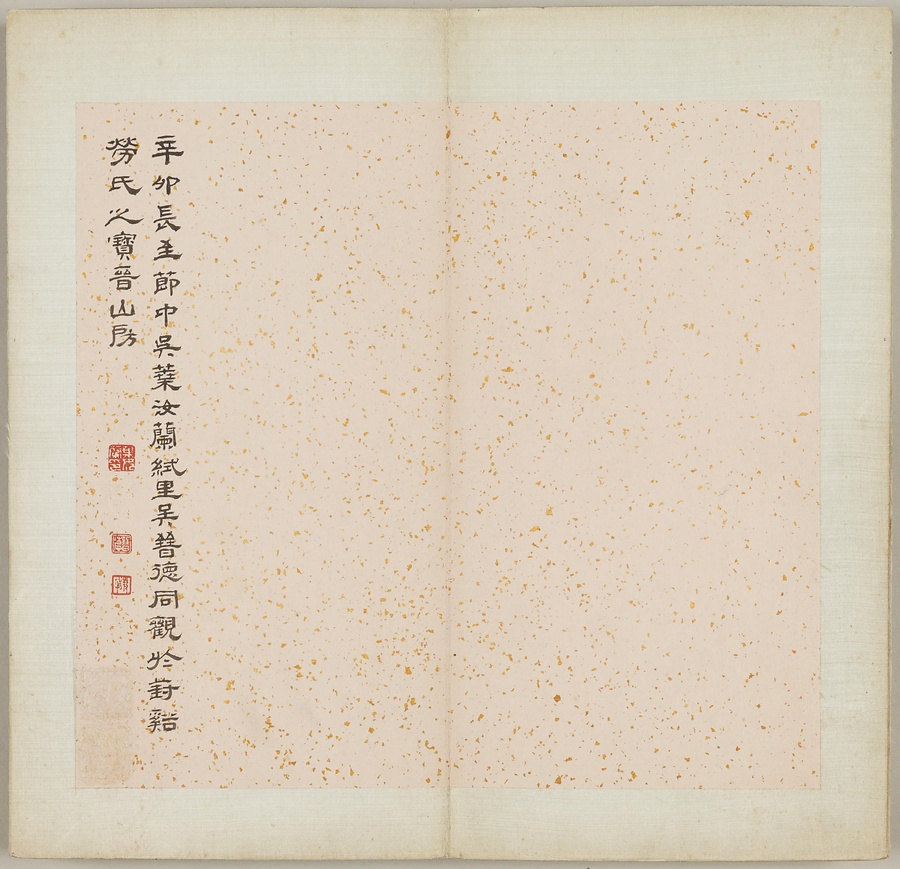 辛卯長至節中吳葉汝蘭紱里吳晉德同觀於葑谿
勞氏之寶晉山房